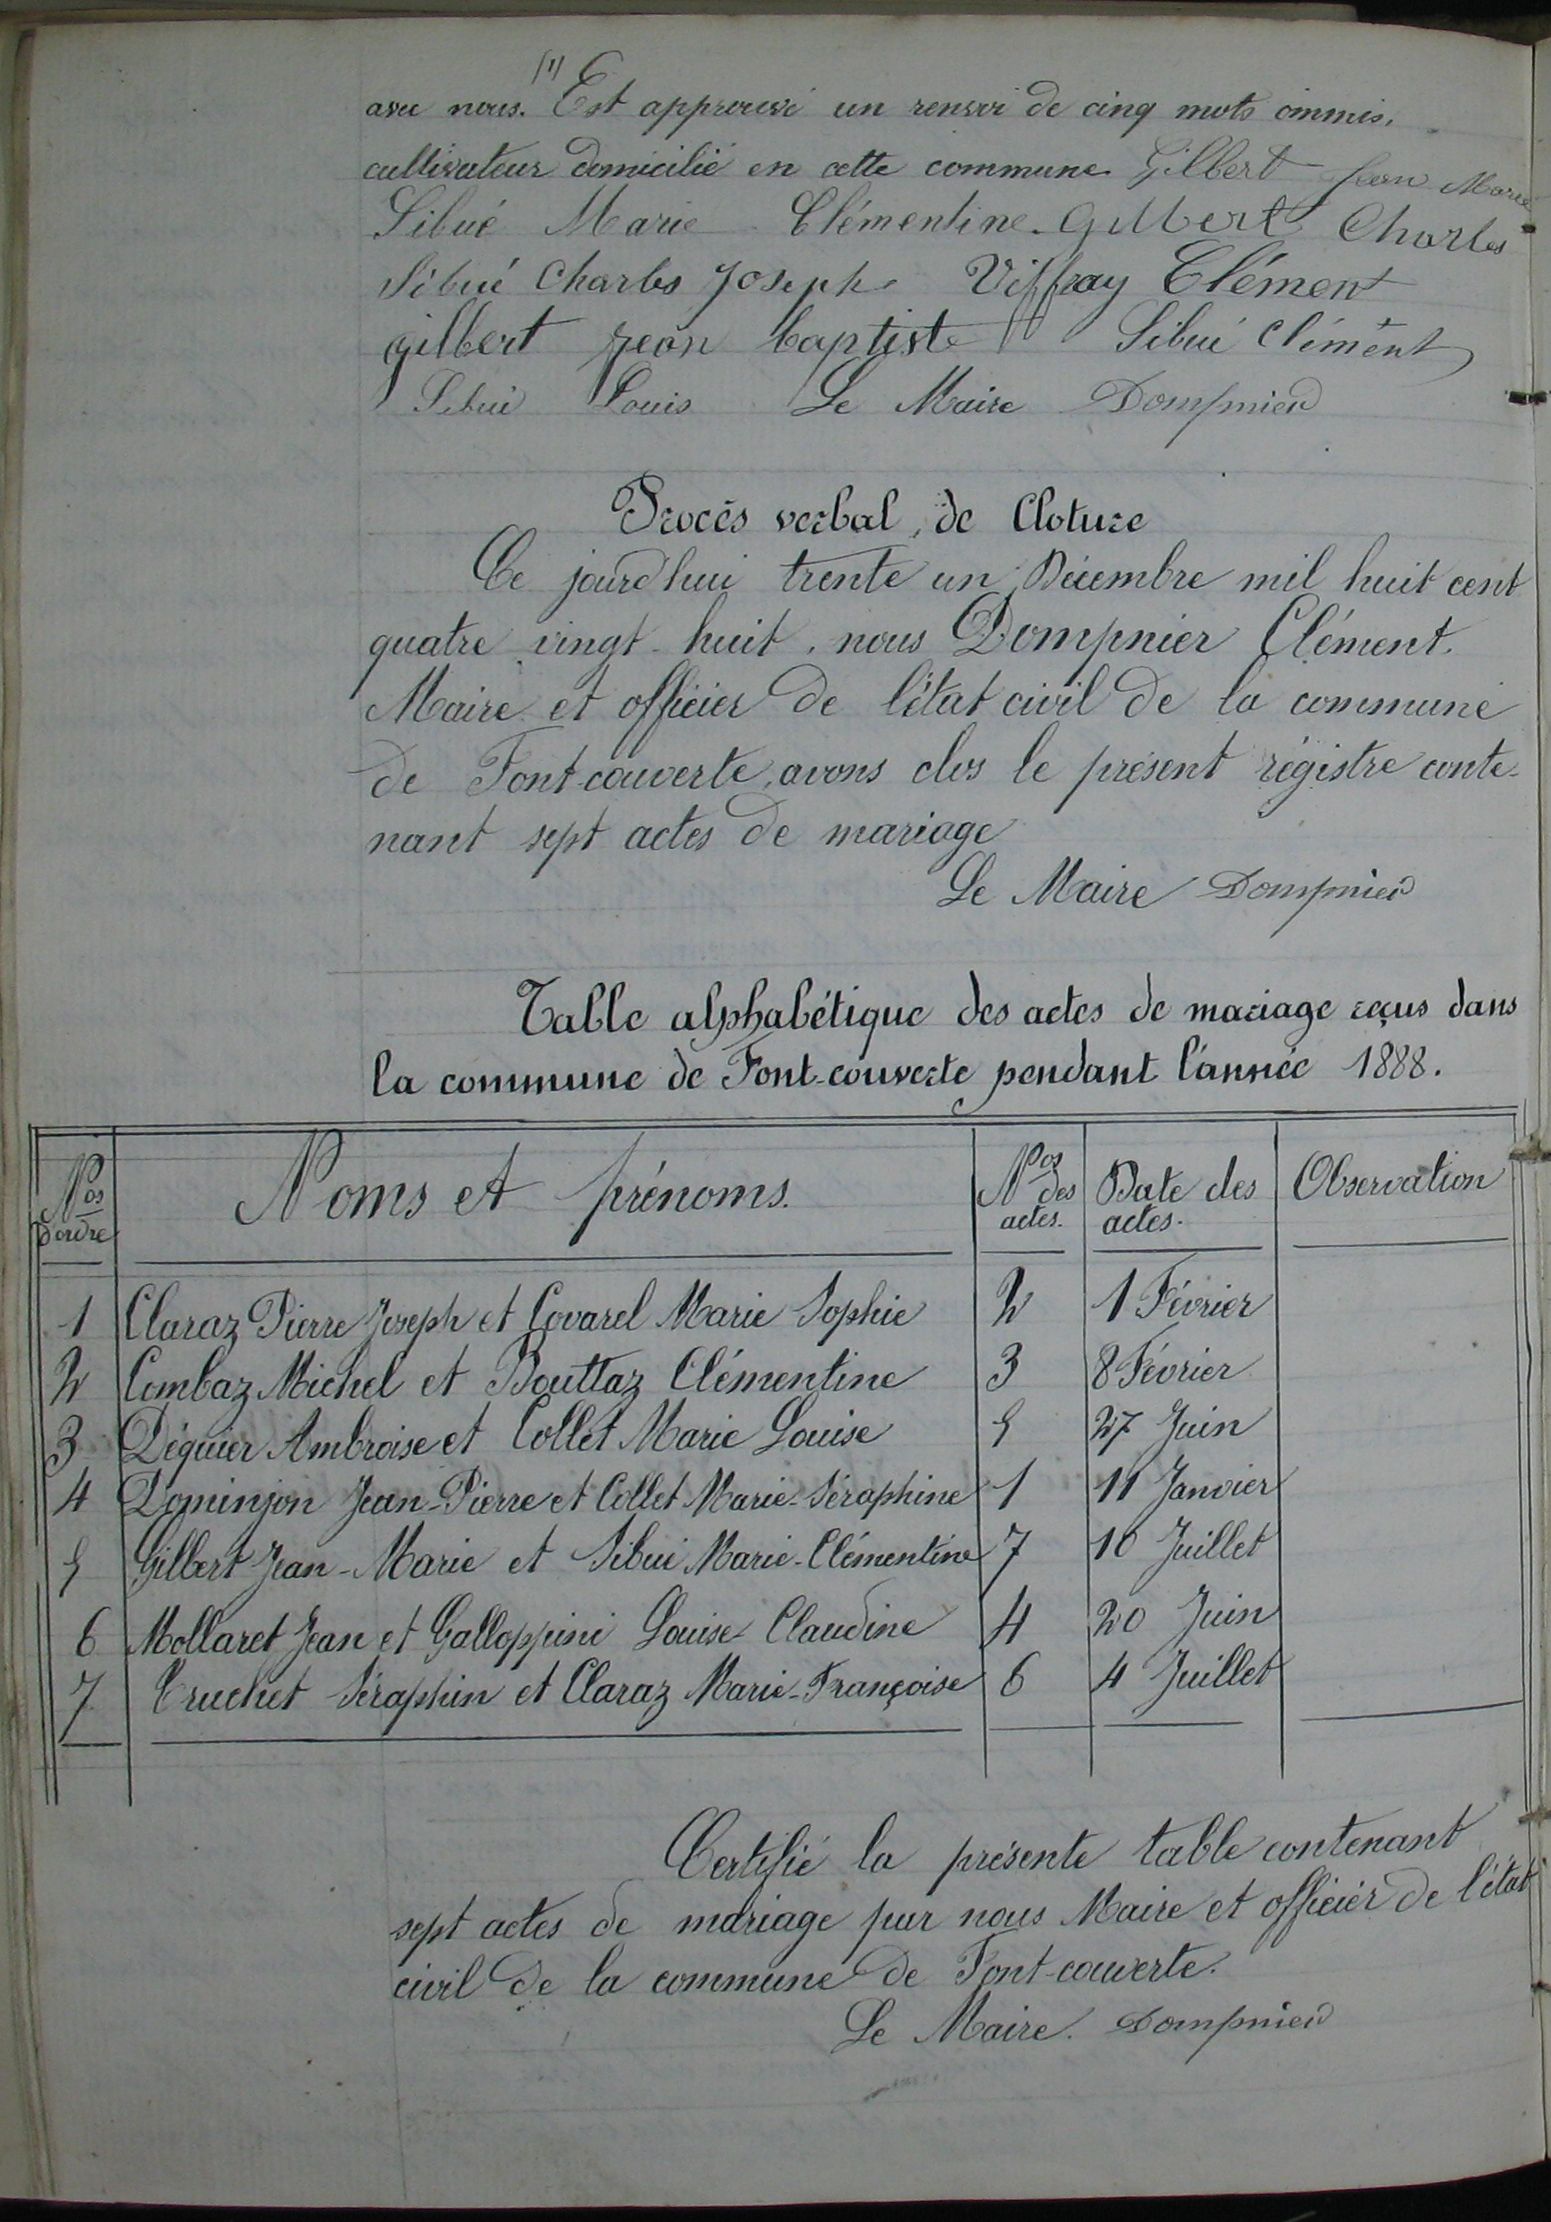 (1)
avec nous. Est approuvé un renvoi de cinq mots ommis.
cultivateur domicilié en cette commune Gilbert Jean Marie
Sibué Marie Clémentine Gilbert Charles
Sibué Charles Joseph Viffray Clément
gilbert jean baptiste Sibué Clément
Sibué Louis Le Maire Dompnier
Procés verbal de Cloture
Ce jourd'hui trente un Décembre mil huit cent
quatre vingt huit, nous Dompnier Clément.
Maire et officier de l'état civil de la commune
de Font-couverte, avons clos le présent régistre conte-
nant sept actes de mariage
Le Maire Dompnier
Table alphabétique des actes de mariage reçus dans
la commune de Font-couverte pendant l'année 1888.
Nos d'ordre Noms et prénoms. Nos des actes. Date des actes. Observation
1 Claraz Pierre Joseph et Covarel Marie Sophie 2 1 Février
2 Combaz Michel et Bouttaz Clémentine 3 8 Février
3 Déquier Ambroise et Collet Marie Louise 5 27 Juin
4 Dominjon Jean-Pierre et Collet Marie-Séraphine 1 11 Janvier
5 Gilbert Jean-Marie et Sibué Marie-Clémentine 7 10 Juillet
6 Mollaret Jean et Galloppini Louise Claudine 4 20 Juin
7 Truchet Séraphin et Claraz Marie-Françoise 6 4 Juillet
Certifié la présente table contenant
sept actes de mariage par nous Maire et officier de l'état
civil de la commune de Font-couverte.
Le Maire. Dompnier